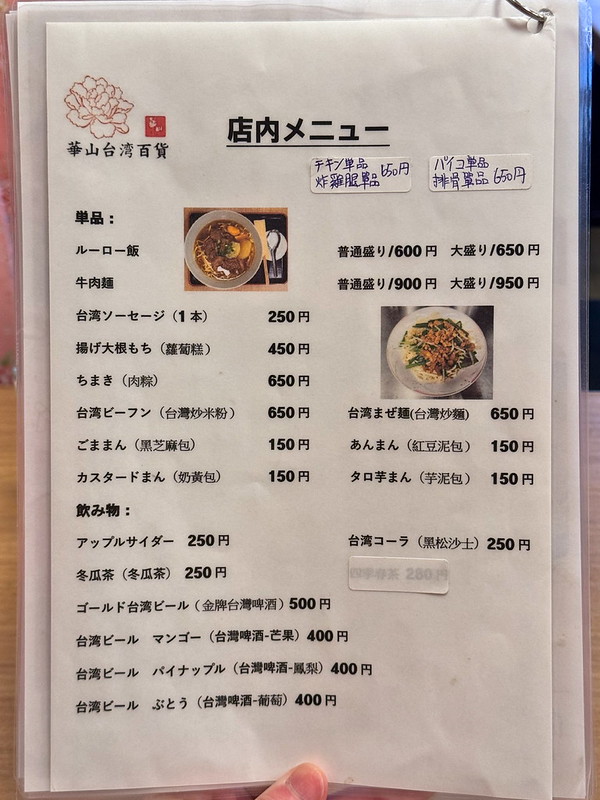 華山台湾百貨
店内メニュー
チキン単品
炸雞腿單品 650円
パイコ単品
排骨單品 650円
単品：
ルーロー飯 普通盛り/600円 大盛り/650円
牛肉麺 普通盛り/900円 大盛り/950円
台湾ソーセージ（1本） 250円
揚げ大根もち（蘿蔔糕） 450円
ちまき（肉粽） 650円
台湾ビーフン（台灣炒米粉） 650円 台湾まぜ麺(台灣炒麵) 650円
ごままん（黑芝麻包） 150円 あんまん（紅豆泥包） 150円
カスタードまん（奶黃包） 150円 タロ芋まん（芋泥包） 150円
飲み物：
アップルサイダー 250円 台湾コーラ（黑松沙士） 250円
冬瓜茶（冬瓜茶） 250円 四季春茶 250円
ゴールド台湾ビール（金牌台灣啤酒）500円
台湾ビール マンゴー（台灣啤酒-芒果）400円
台湾ビール パイナップル（台灣啤酒-鳳梨）400円
台湾ビール ぶとう（台灣啤酒-葡萄）400円